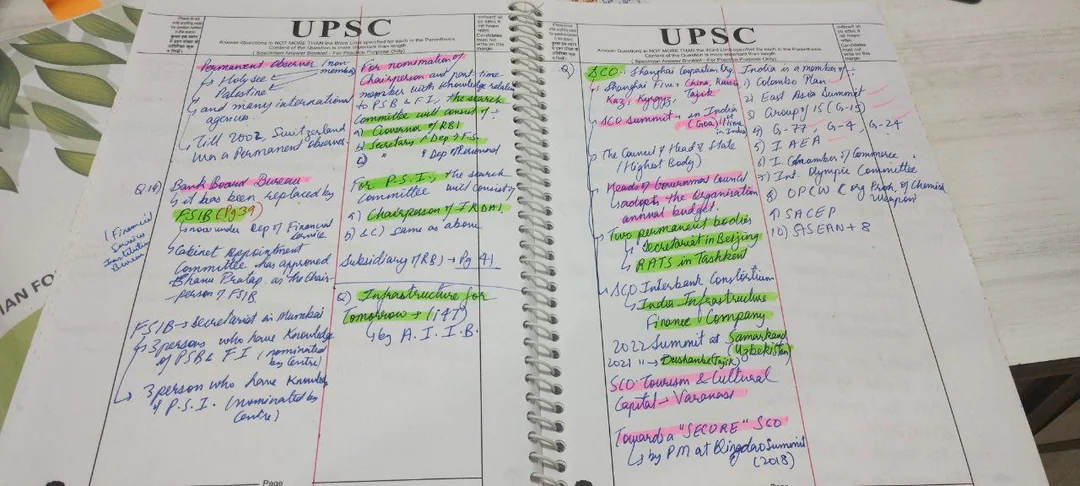 UPSC
Answer Questions in NOT MORE THAN the Word Limit specified for each in the Parenthesis
Content of the Question is more important than length
( Specimen Answer Booklet - For Practice Purpose Only )
Permanent observer (non-
member)
Holy see
Palestine
and many international
agencies.
Till 2002, Switzerland
was a Permanent observer.
Bank Board Bureau
it has been replaced by
FSIB (Pg 39)
(Financial
Service
Institution
Bureau)
now under Dep of Financial
Service
Cabinet Appointment
Committee has approved
Bhanu Pratap as the Chair-
person of FSIB
FSIB → Secretariat in Mumbai
3 persons who have Knowledge
of PSB & FI (nominated
by Centre)
3 person who have Knowledge
of P.S.I. (nominated by
Centre)
For nomination of
Chairperson and part time
member with knowledge relation
to PSB & FI, the search
Committee will consist of :-
a) Governor of RBI
b) Secretary, Dep of F.S.
c) " , Dep of Revenue
For P.S.I., the search
Committee will consist of
a) Chairperson of IRDAI
b) & c) same as above
Subsidiary of RBI → Pg 41
Q) Infrastructure for
Tomorrow → (i4T)
by A.I.I.B.
Page
UPSC
Answer Questions in NOT MORE THAN the Word Limit specified for each in the Parenthesis
Content of the Question is more important than length
( Specimen Answer Booklet - For Practice Purpose Only )
Candidates
must not
write on this
margin
Q)
SCO - Shanghai Cooperation Org.
Shanghai Five : China, Russia
Kaz, Kyrgyz, Tajik
SCO Summit - in India
(Goa) 1st time
in India
The Council of Head of State
(Highest Body)
Heads of Government Council
adopt the Organisation
annual budget.
Two permanent bodies
Secretariat in Beijing
RATS in Tashkent
SCO Interbank Consortium
India Infrastructure
Finance Company
2022 Summit at Samarkand
(Uzbekistan)
2021 " → Dushanbe (Tajik)
SCO Tourism & Cultural
Capital → Varanasi
Towards a "SECURE" SCO
by PM at Qingdao Summit
(2018)
India is a member of :-
1) Colombo Plan
2) East Asia Summit
3) Group of 15 (G-15)
4) G-77, G-4, G-24
5) IAEA
6) I. Chamber of Commerce.
7) Int. Olympic Committee
8) OPCW (Org Proh. of Chemical
weapon)
9) SACEP
10) ASEAN + 8
Page